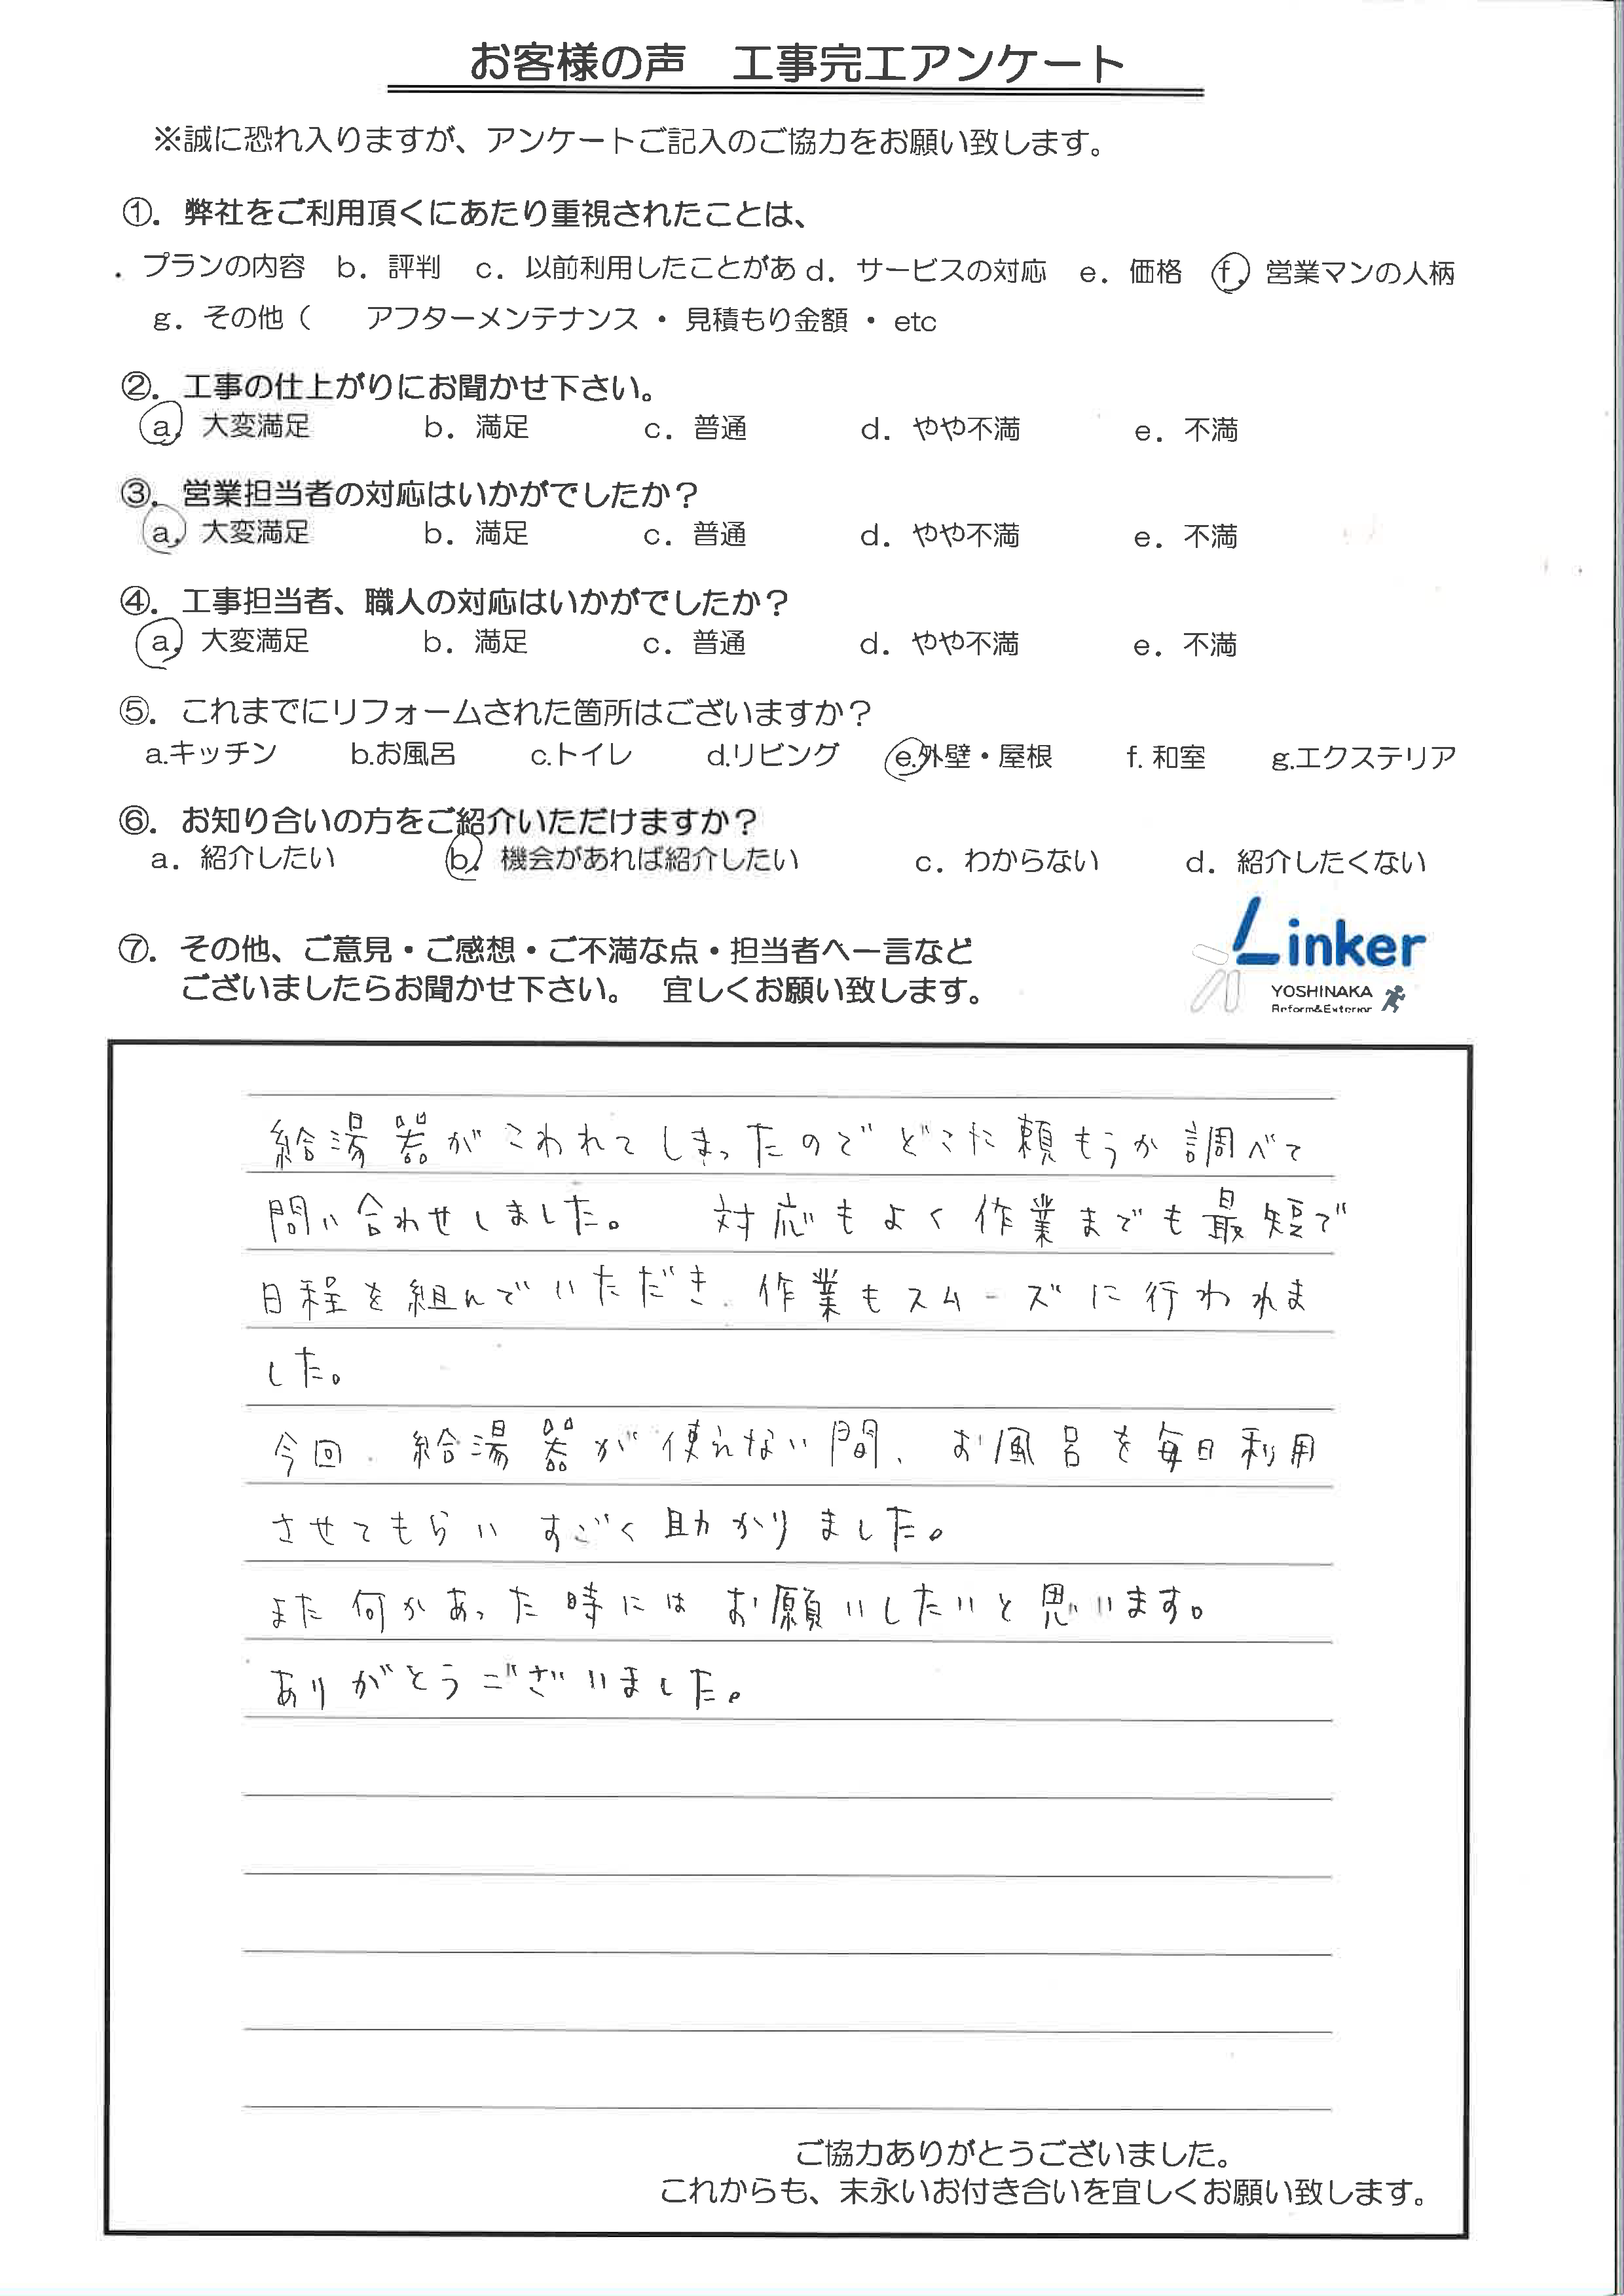 お客様の声　工事完工アンケート
※誠に恐れ入りますが、アンケートご記入のご協力をお願い致します。
①．弊社をご利用頂くにあたり重視されたことは、
．プランの内容　b．評判　c．以前利用したことがあ d．サービスの対応　e．価格　f．営業マンの人柄
g．その他（　　アフターメンテナンス ・ 見積もり金額 ・ etc
②．工事の仕上がりにお聞かせ下さい。
a．大変満足　b．満足　c．普通　d．やや不満　e．不満
③．営業担当者の対応はいかがでしたか？
a．大変満足　b．満足　c．普通　d．やや不満　e．不満
④．工事担当者、職人の対応はいかがでしたか？
a．大変満足　b．満足　c．普通　d．やや不満　e．不満
⑤．これまでにリフォームされた箇所はございますか？
a.キッチン　b.お風呂　c.トイレ　d.リビング　e.外壁・屋根　f. 和室　g.エクステリア
⑥．お知り合いの方をご紹介いただけますか？
a．紹介したい　b．機会があれば紹介したい　c．わからない　d．紹介したくない
⑦．その他、ご意見・ご感想・ご不満な点・担当者へ一言など
ございましたらお聞かせ下さい。　宜しくお願い致します。
Linker
YOSHINAKA
Reform&Exterior
給湯器がこわれてしまったのでどこに頼もうか調べて
問い合わせしました。　対応もよく作業までも最短で
日程を組んでいただき、作業もスムーズに行われま
した。
今回、給湯器が使えない間、お風呂を毎日利用
させてもらい すごく助かりました。
また何かあった時にはお願いしたいと思います。
ありがとうございました。
ご協力ありがとうございました。
これからも、末永いお付き合いを宜しくお願い致します。